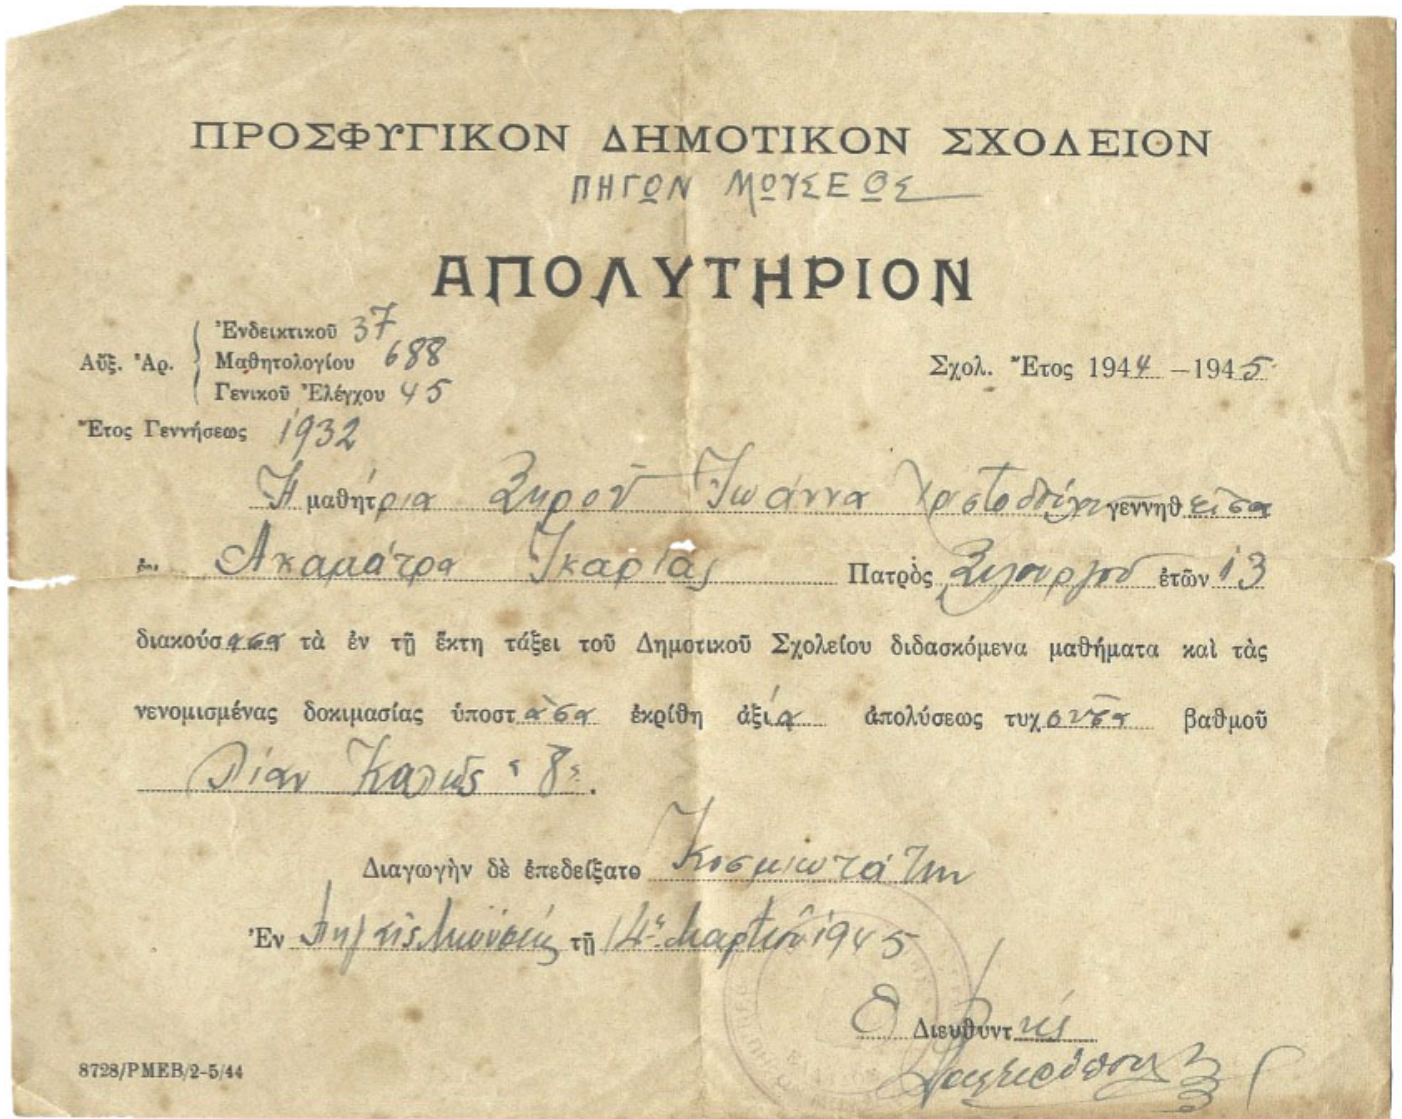 ΠΡΟΣΦΥΓΙΚΟΝ ΔΗΜΟΤΙΚΟΝ ΣΧΟΛΕΙΟΝ
ΠΗΓΩΝ ΜΩΥΣΕΩΣ
ΑΠΟΛΥΤΗΡΙΟΝ
Αὔξ. Ἀρ.
Ἐνδεικτικοῦ 37
Μαθητολογίου 688
Γενικοῦ Ἐλέγχου 45
Σχολ. Ἔτος 1944 – 1945
Ἔτος Γεννήσεως 1932
Ἡ μαθήτρια Ἰωάννα γεννηθεῖσα
ἐν Ἀκαμάτρα Ἰκαρίας Πατρὸς ἐτῶν 13
διακούσασα τὰ ἐν τῇ ἕκτῃ τάξει τοῦ Δημοτικοῦ Σχολείου διδασκόμενα μαθήματα καὶ τὰς
νενομισμένας δοκιμασίας ὑποστᾶσα ἐκρίθη ἀξία ἀπολύσεως τυχοῦσα βαθμοῦ
Λίαν Καλῶς "8".
Διαγωγὴν δὲ ἐπεδείξατο Κοσμιωτάτην
Ἐν τῇ 14ῃ Μαρτίου 1945
Ὁ Διευθυντής
8728/PMEB/2-5/44